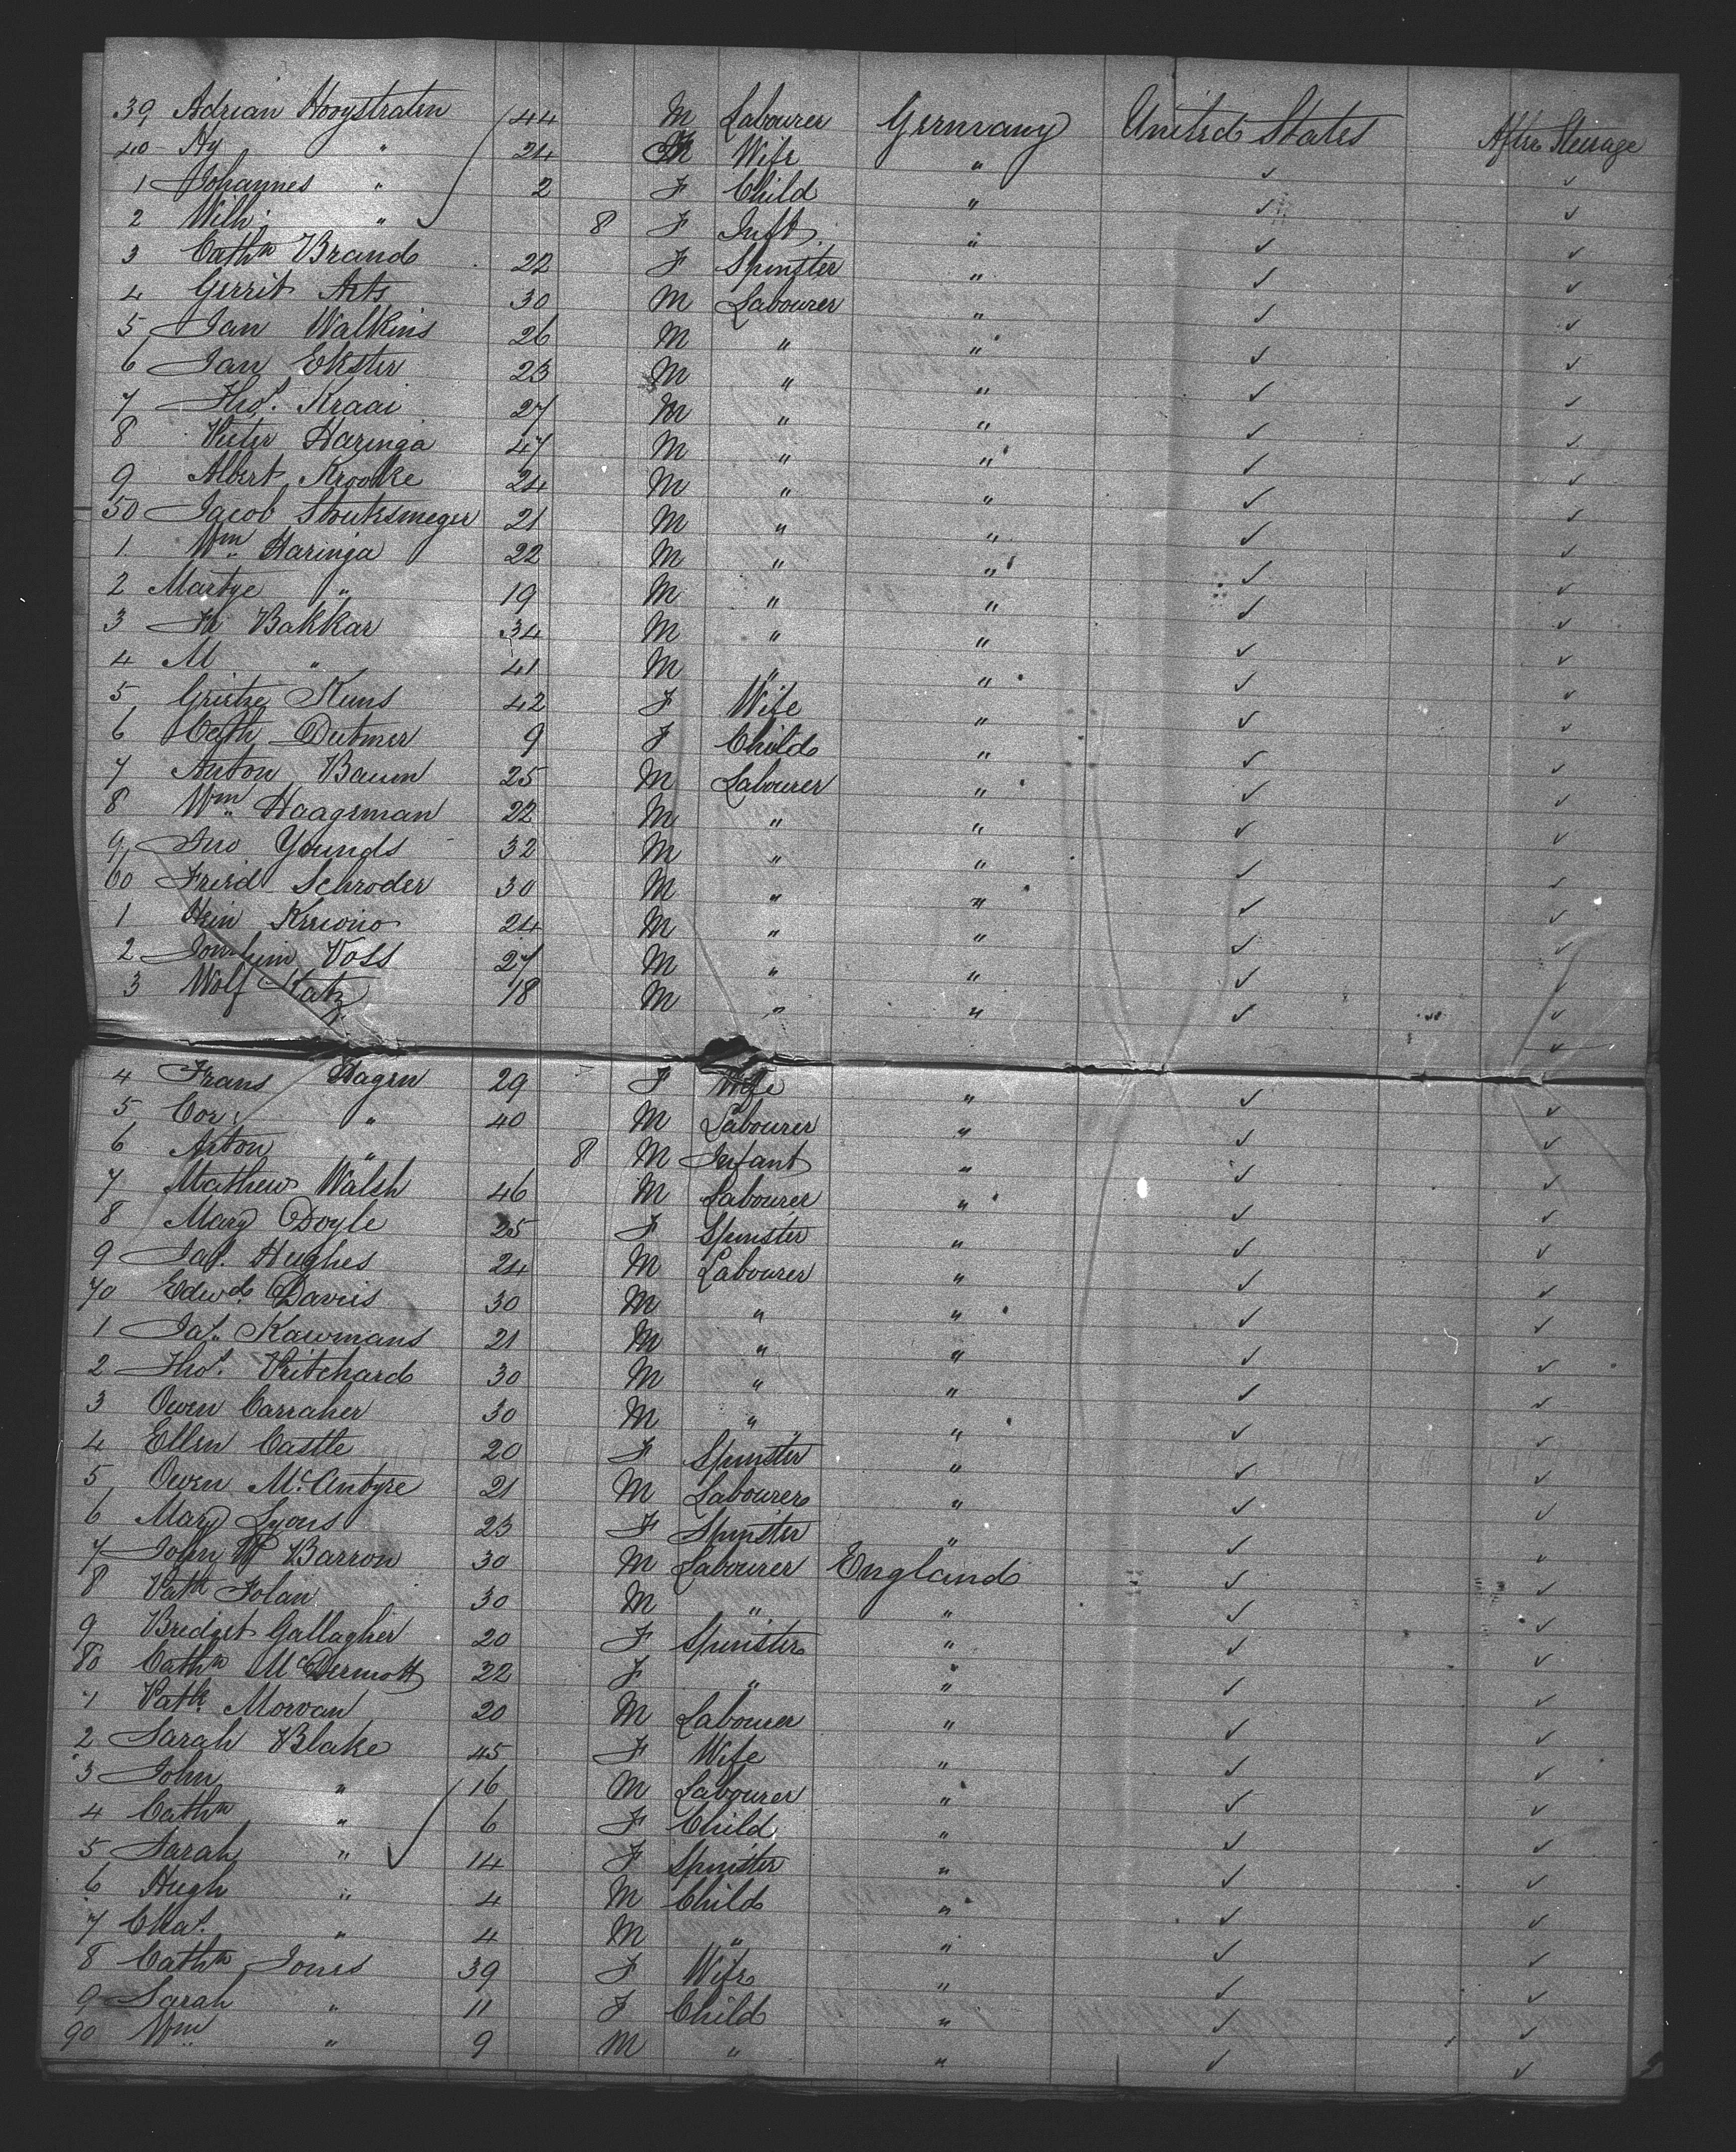 39 Adrian Hoogstraten 44 M Labourer Germany United States After Steerage
40 Hy " 24 F Wife " ✓ ✓
1 Johannes " 2 F Child " ✓ ✓
2 Wilh: " 8 F Inft. " ✓ ✓
3 Cathn Brand 22 F Spinster " ✓ ✓
4 Gerrit Arts 30 M Labourer " ✓ ✓
5 Jan Walkins 26 M " " ✓ ✓
6 Jan Ekster 23 M " " ✓ ✓
7 Thos. Kraai 27 M " " ✓ ✓
8 Pieter Haringa 47 M " " ✓ ✓
9 Albert Krooke 24 M " " ✓ ✓
50 Jacob Stouksmeger 21 M " " ✓ ✓
1 Wm Haringa 22 M " " ✓ ✓
2 Martye " 19 M " " ✓ ✓
3 Bakkar 34 M " " ✓ ✓
4 M " 41 M " " ✓ ✓
5 Grietze Kuns 42 F Wife " ✓ ✓
6 Cath Dutmer 9 F Child " ✓ ✓
7 Anton Baum 25 M Labourer " ✓ ✓
8 Wm Haagsman 22 M " " ✓ ✓
9 Jno Younds 32 M " " ✓ ✓
60 Freid Schroder 30 M " " ✓ ✓
1 Hein 24 M " " ✓ ✓
2 Voss 27 M " " ✓ ✓
3 Wolf Katz 18 M " " ✓ ✓
4 Frans Hagen 29 F Wife " ✓ ✓
5 Cor: " 40 M Labourer " ✓ ✓
6 Anton " 8 M Infant " ✓ ✓
7 Mathew Walsh 46 M Labourer " ✓ ✓
8 Mary Doyle 25 F Spinster " ✓ ✓
9 Jas. Hughes 24 M Labourer " ✓ ✓
70 Edwd. Davis 30 M " " ✓ ✓
1 Jas. Kawmans 21 M " " ✓ ✓
2 Thos. Pritchard 30 M " " ✓ ✓
3 Owen Carraher 30 M " " ✓ ✓
4 Ellen Castle 20 F Spinster " ✓ ✓
5 Owen McAntyre 21 M Labourer " ✓ ✓
6 Mary Lyons 23 F Spinster " ✓ ✓
7 John W Barron 30 M Labourer England ✓ ✓
8 Patk Folan 30 M " " ✓ ✓
9 Bridget Gallagher 20 F Spinster " ✓ ✓
80 Cathn McDermott 22 F " " ✓ ✓
1 Patk. Morvan 20 M Labourer " ✓ ✓
2 Sarah Blake 45 F Wife " ✓ ✓
3 John " 16 M Labourer " ✓ ✓
4 Cathn " 6 F Child " ✓ ✓
5 Sarah " 14 F Spinster " ✓ ✓
6 Hugh " 4 M Child " ✓ ✓
7 Chas. " 4 M " " ✓ ✓
8 Cathn Jones 39 F Wife " ✓ ✓
9 Sarah " 11 F Child " ✓ ✓
90 Wm " 9 M " " ✓ ✓